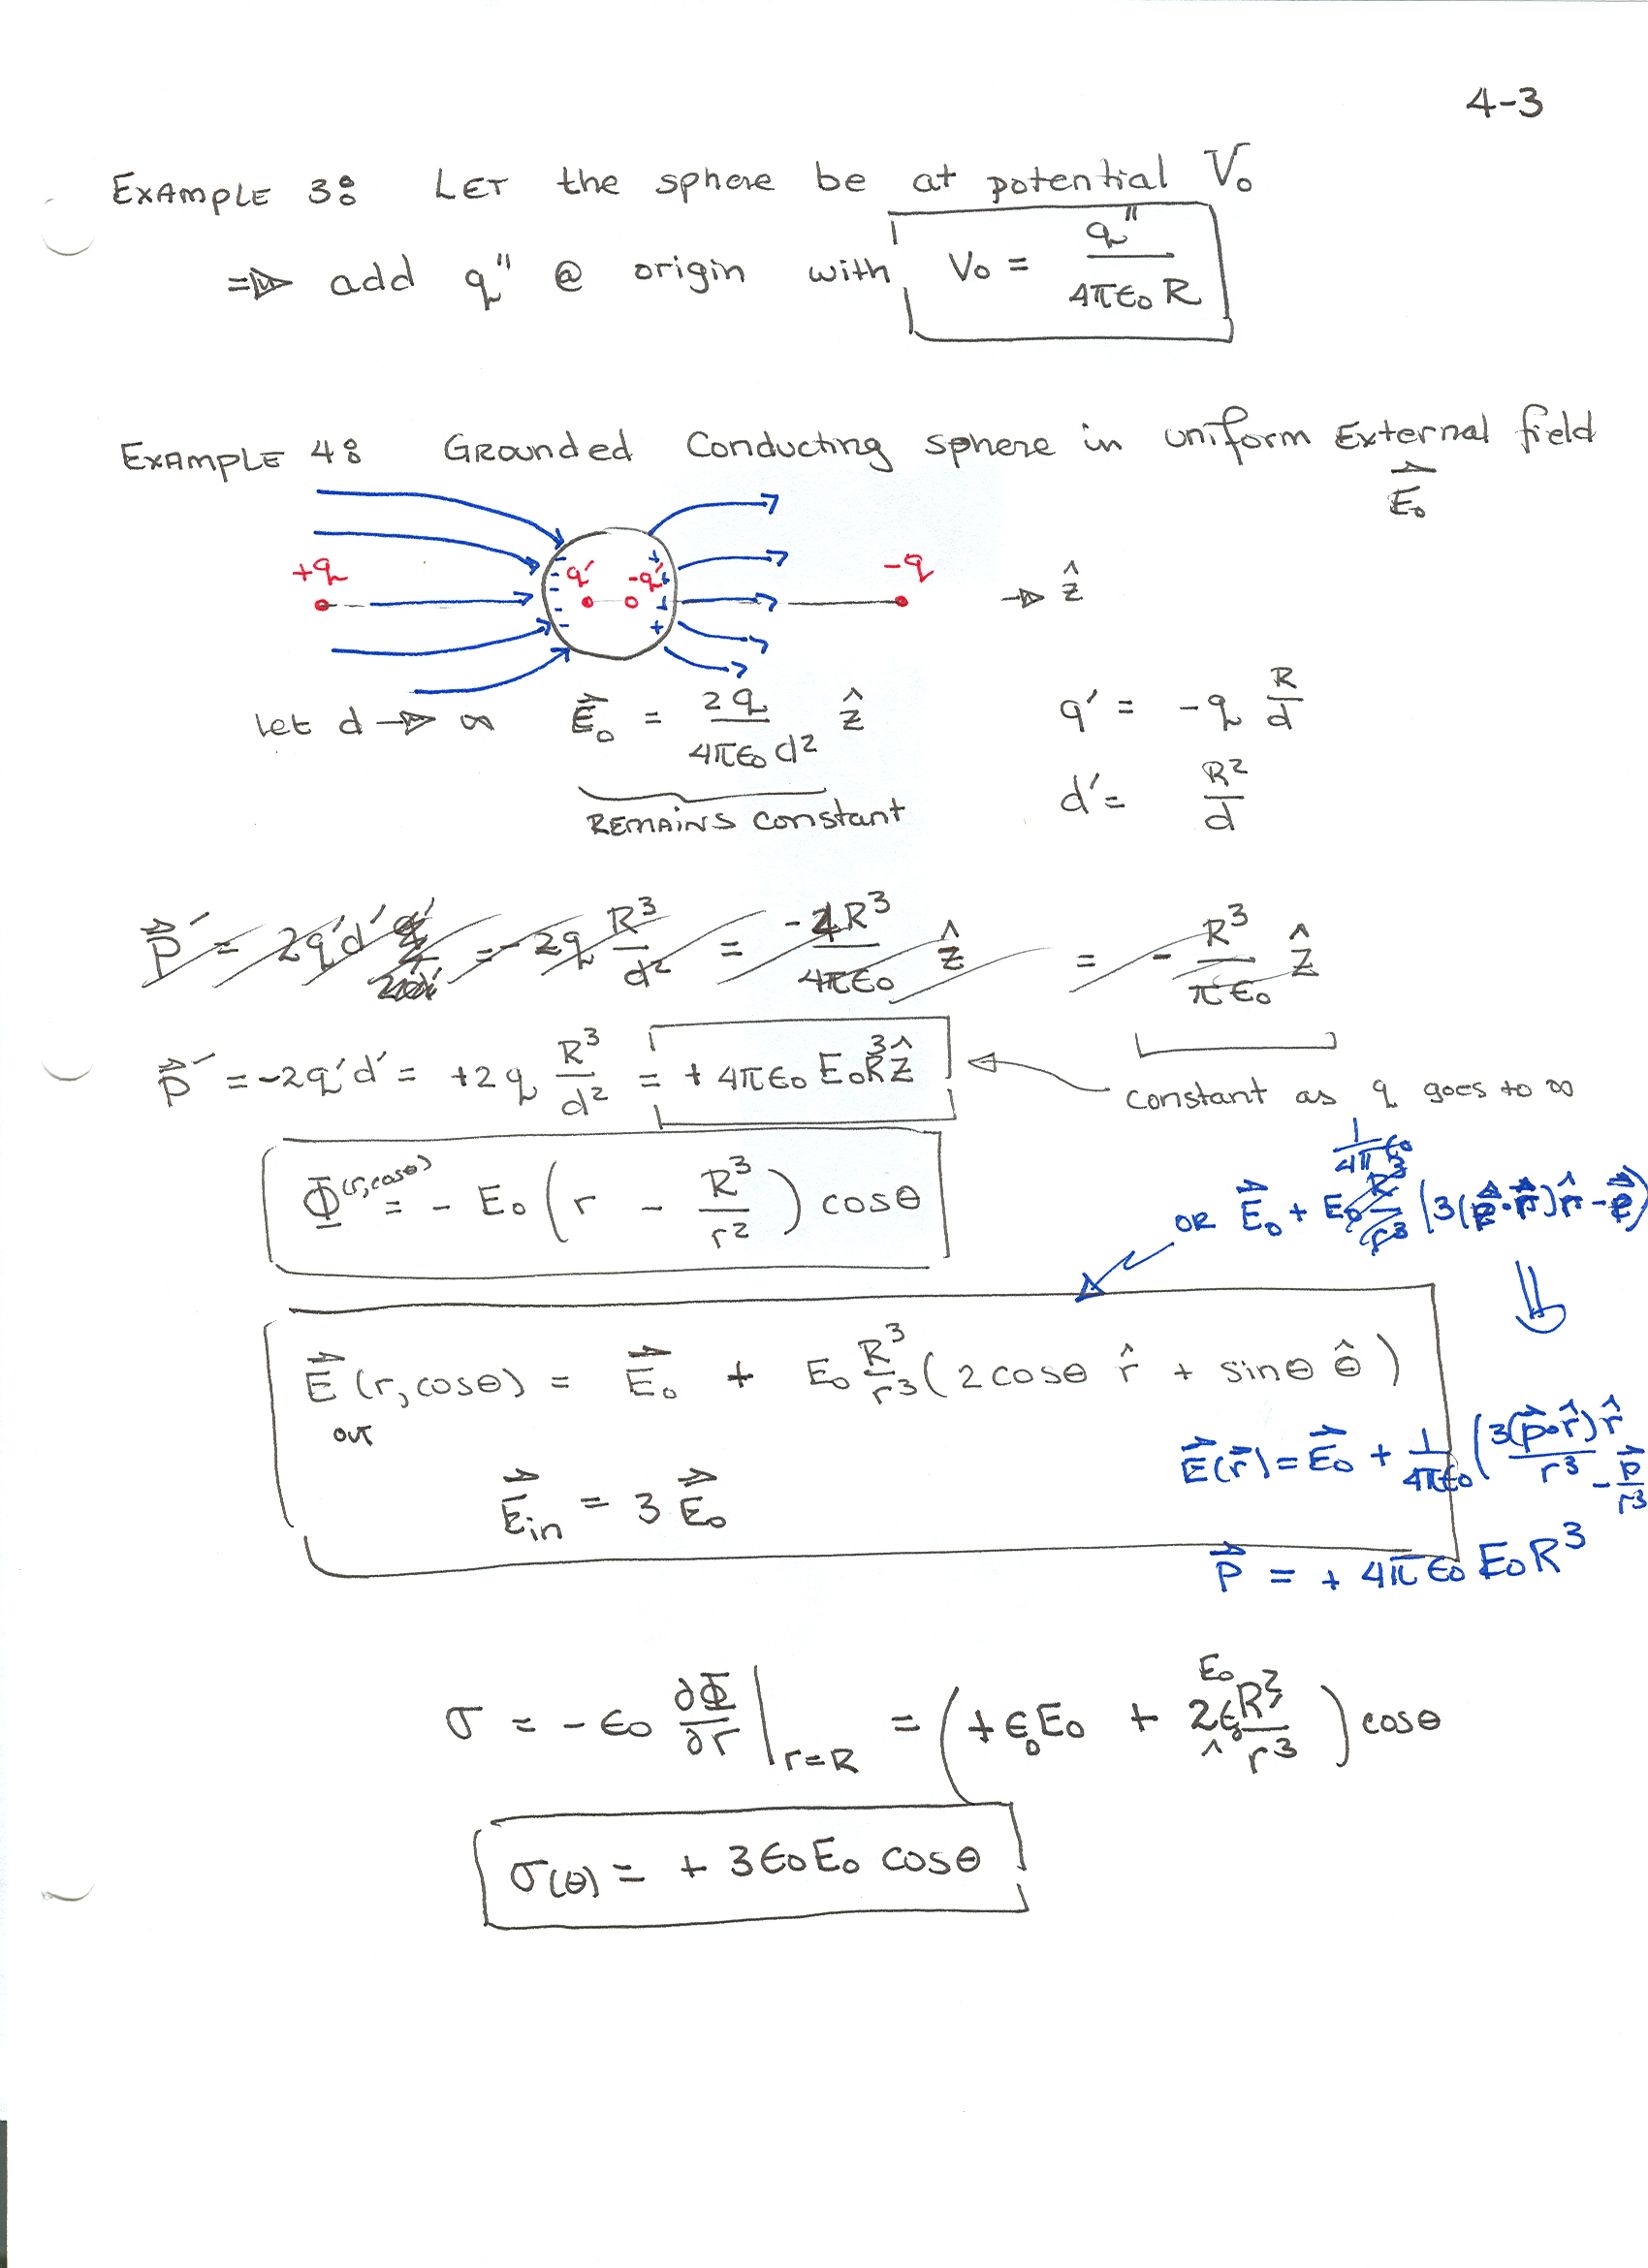 4-3
EXAMPLE 3: LET the sphere be at potential V₀
=> add q" @ origin with V₀ = q" / 4πε₀R
EXAMPLE 4: Grounded Conducting sphere in uniform External field
E⃗₀
+q q′ -q′ -q → ẑ
Let d → ∞ E⃗₀ = 2q / 4πε₀d² ẑ q′ = -q R/d
REMAINS constant d′ = R²/d
p⃗′ = 2q′d′ = -2q R³/d² = -4R³/4πε₀ ẑ = - R³/πε₀ ẑ
p⃗′ = -2q′d′ = +2q R³/d² = + 4πε₀E₀R³ẑ
constant as q goes to ∞
Φ(r,cosθ) = - E₀ (r - R³/r²) cosθ
OR E⃗₀ + 1/4πε₀ E₀ R³/r³ (3(p⃗·r̂)r̂ - p⃗)
E⃗(r,cosθ) = E⃗₀ + E₀ R³/r³ (2cosθ r̂ + sinθ θ̂)
OUT
E⃗(r⃗) = E⃗₀ + 1/4πε₀ (3(p⃗·r̂)r̂/r³ - p⃗/r³
E⃗in = 3 E⃗₀
p⃗ = + 4πε₀E₀R³
σ = -ε₀ ∂Φ/∂r |r=R = (+ε₀E₀ + 2ε₀E₀ R³/r³) cosθ
σ(θ) = + 3ε₀E₀ cosθ